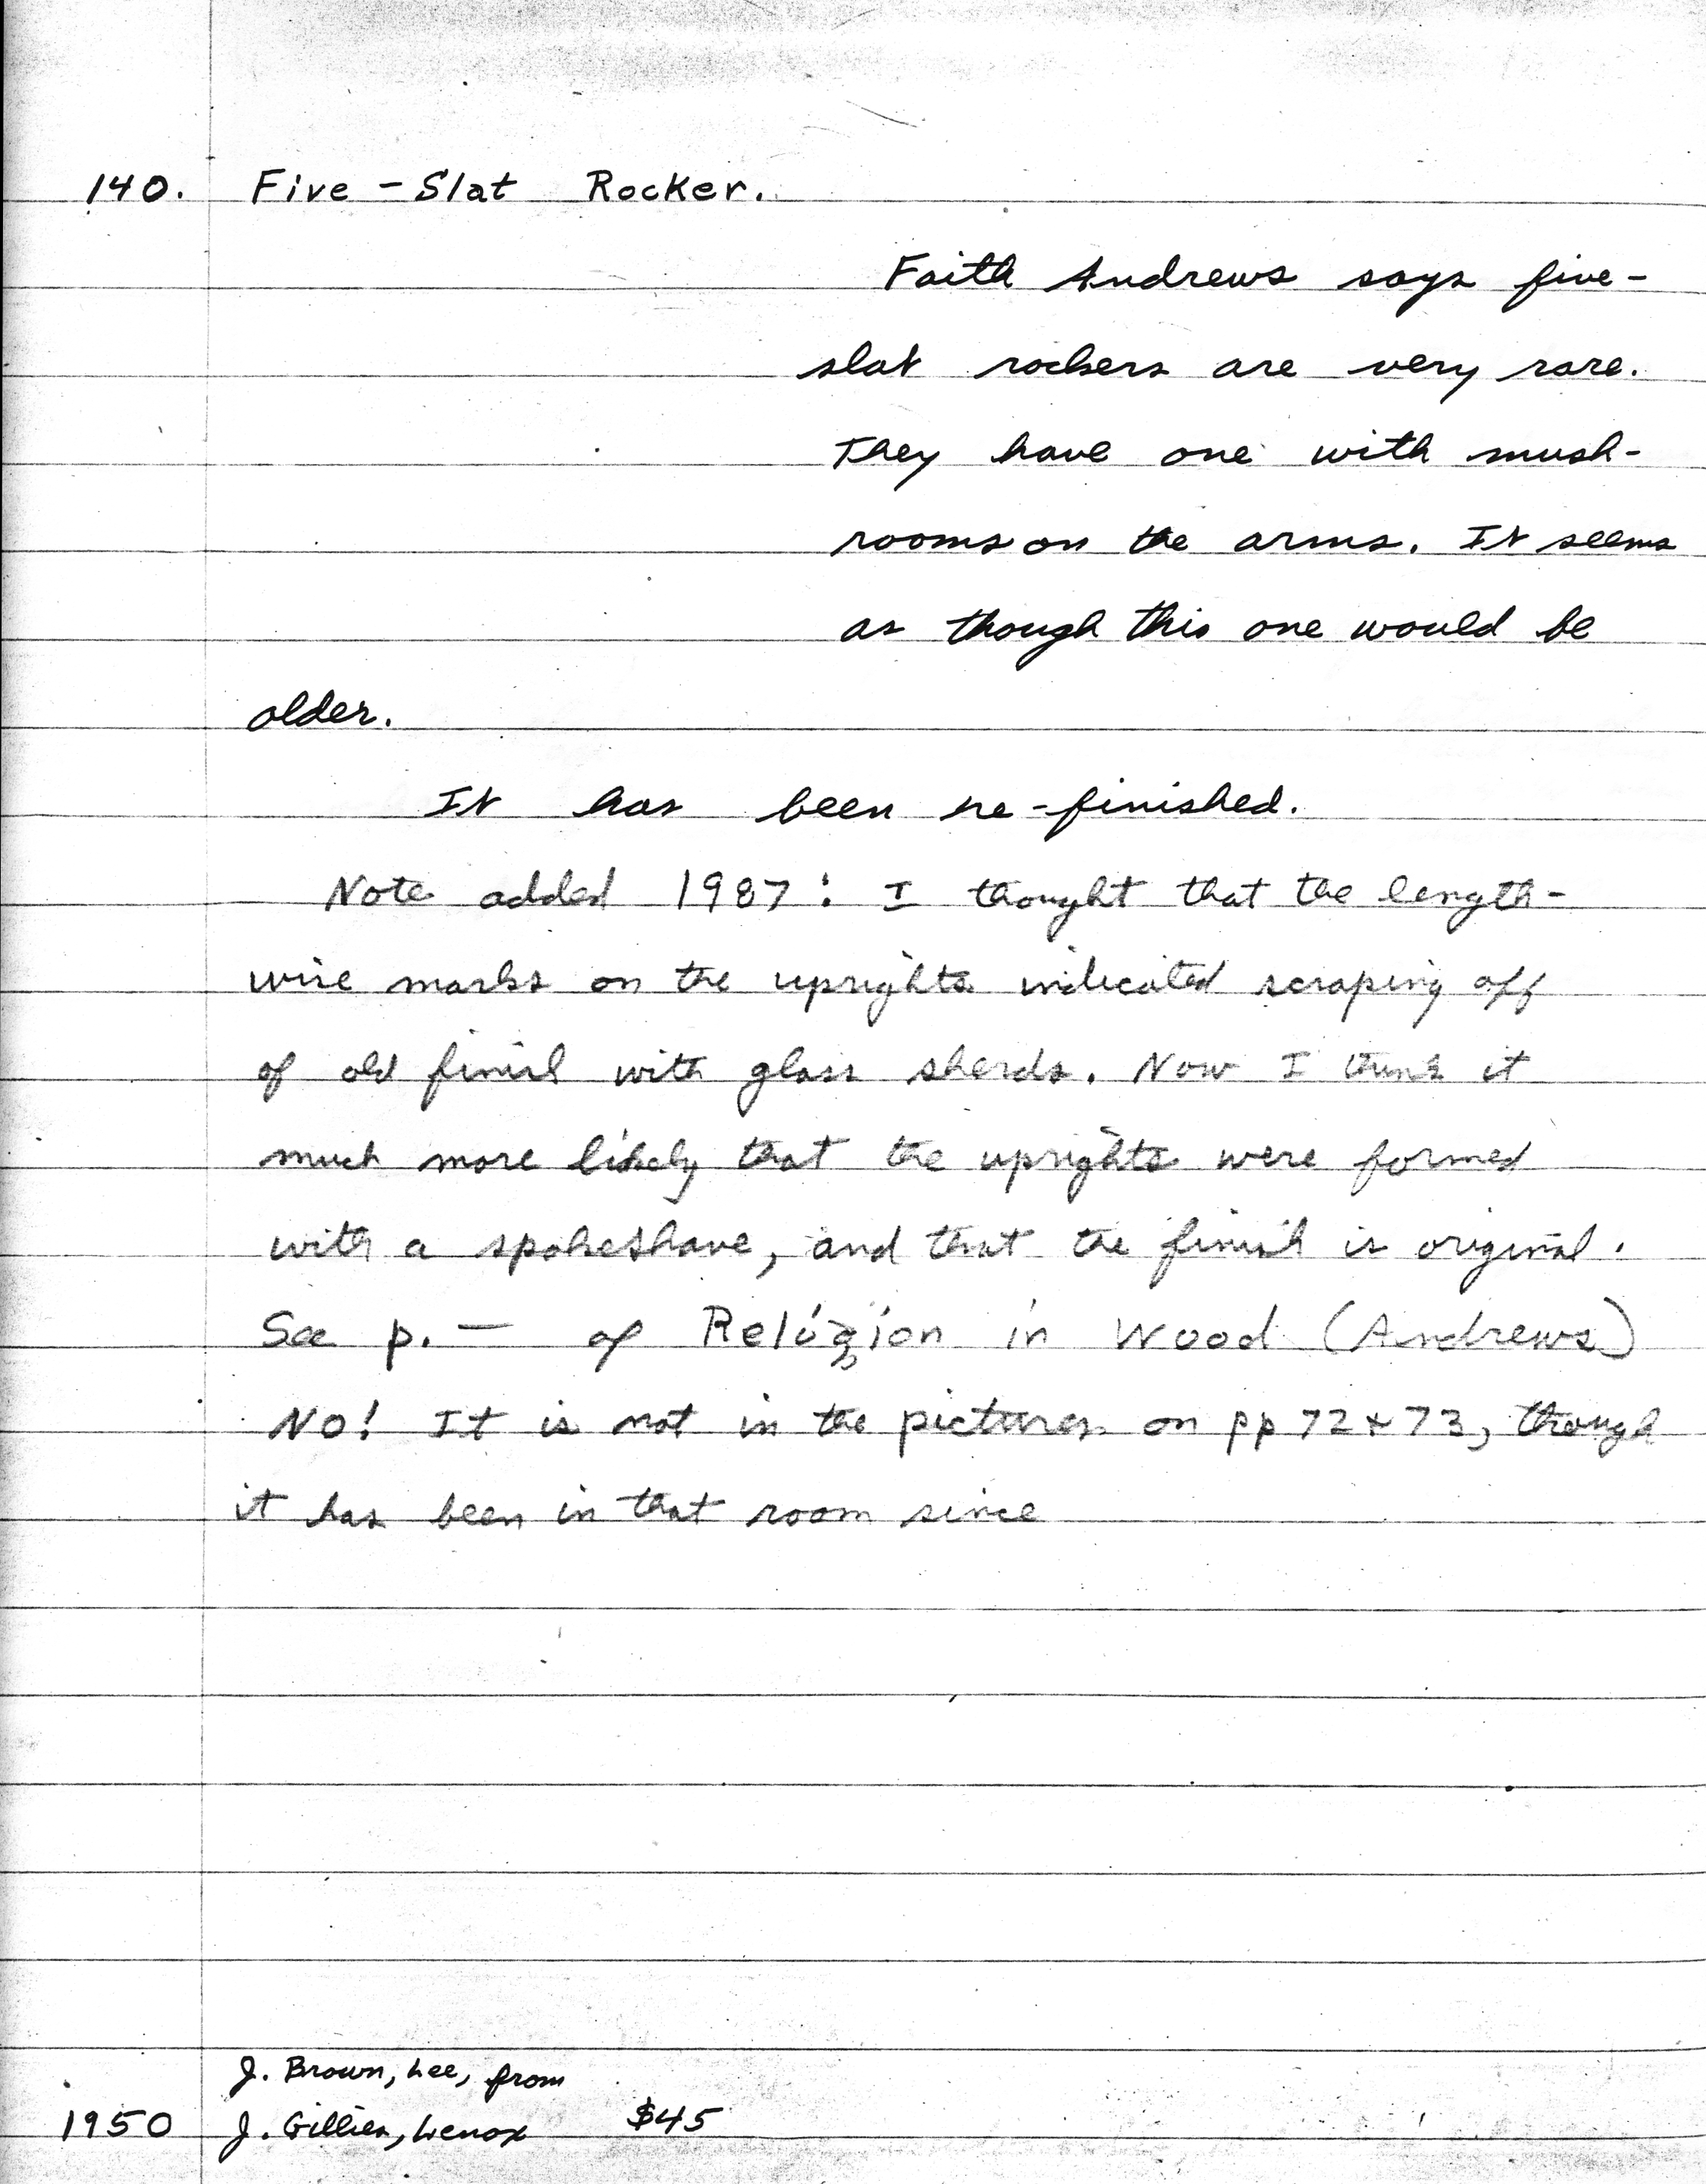 140. Five-Slat Rocker.
Faith Andrews says five-
slat rockers are very rare.
They have one with mush-
rooms on the arms. It seems
as though this one would be
older.
It has been re-finished.
Note added 1987: I thought that the length-
wise marks on the uprights indicated scraping off
of old finish with glass sherds. Now I think it
much more likely that the uprights were formed
with a spokeshave, and that the finish is original.
See p. — of Religion in Wood (Andrews)
NO! It is not in the pictures on pp 72 + 73, though
it has been in that room since
J. Brown, Lee, from
1950 J. Gillies, Lenox $45